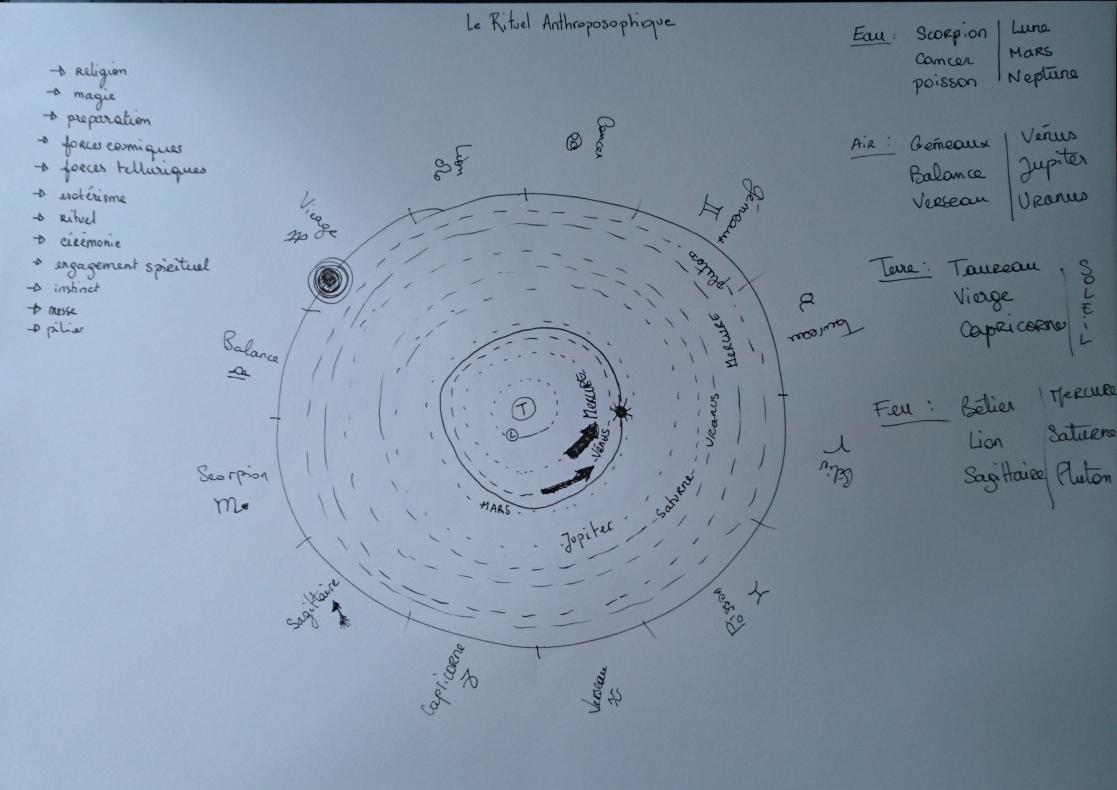 Le Rituel Anthroposophique
→ religion
→ magie
→ preparation
→ forces cosmiques
→ forces telluriques
→ esotérisme
→ Rituel
→ cérémonie
→ engagement spirituel
→ instinct
→ messe
→ pilier
Eau : Scorpion | Lune
Cancer | MARS
poisson | Neptune
Air : Gemeaux | Vénus
Balance | Jupiter
Verseau | Uranus
Terre : Taureau
Vierge
Capricorne
SOLEIL
Feu : Bélier | Mercure
Lion | Saturne
Sagittaire | Pluton
Cancer ♋
Lion ♌
Vierge ♍
Balance ♎
Scorpion ♏
Sagittaire ♐
Capricorne ♑
Verseau ♒
Poisson ♓
Bélier ♈
Taureau ♉
Gémeaux ♊
pluton
MERCURE
Uranus
Saturne
Jupiter
MARS
Vénus
MERCURE
T